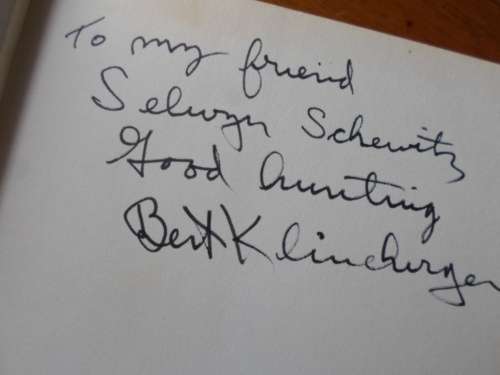 To my friend
Selwyn Schewitz
Good hunting
Bert Klineburger